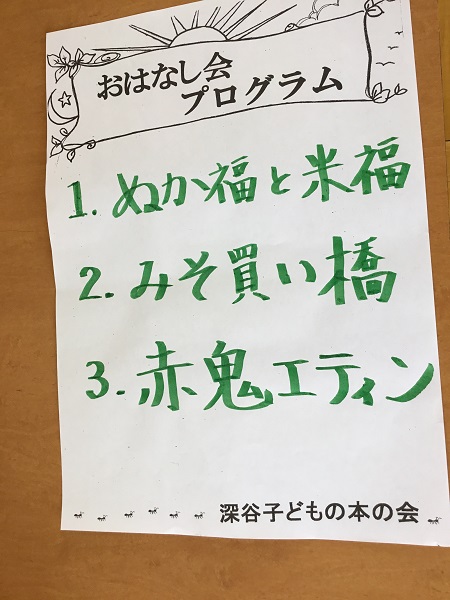 おはなし会
プログラム
1. ぬか福と米福
2. みそ買い橋
3. 赤鬼エティン
深谷子どもの本の会